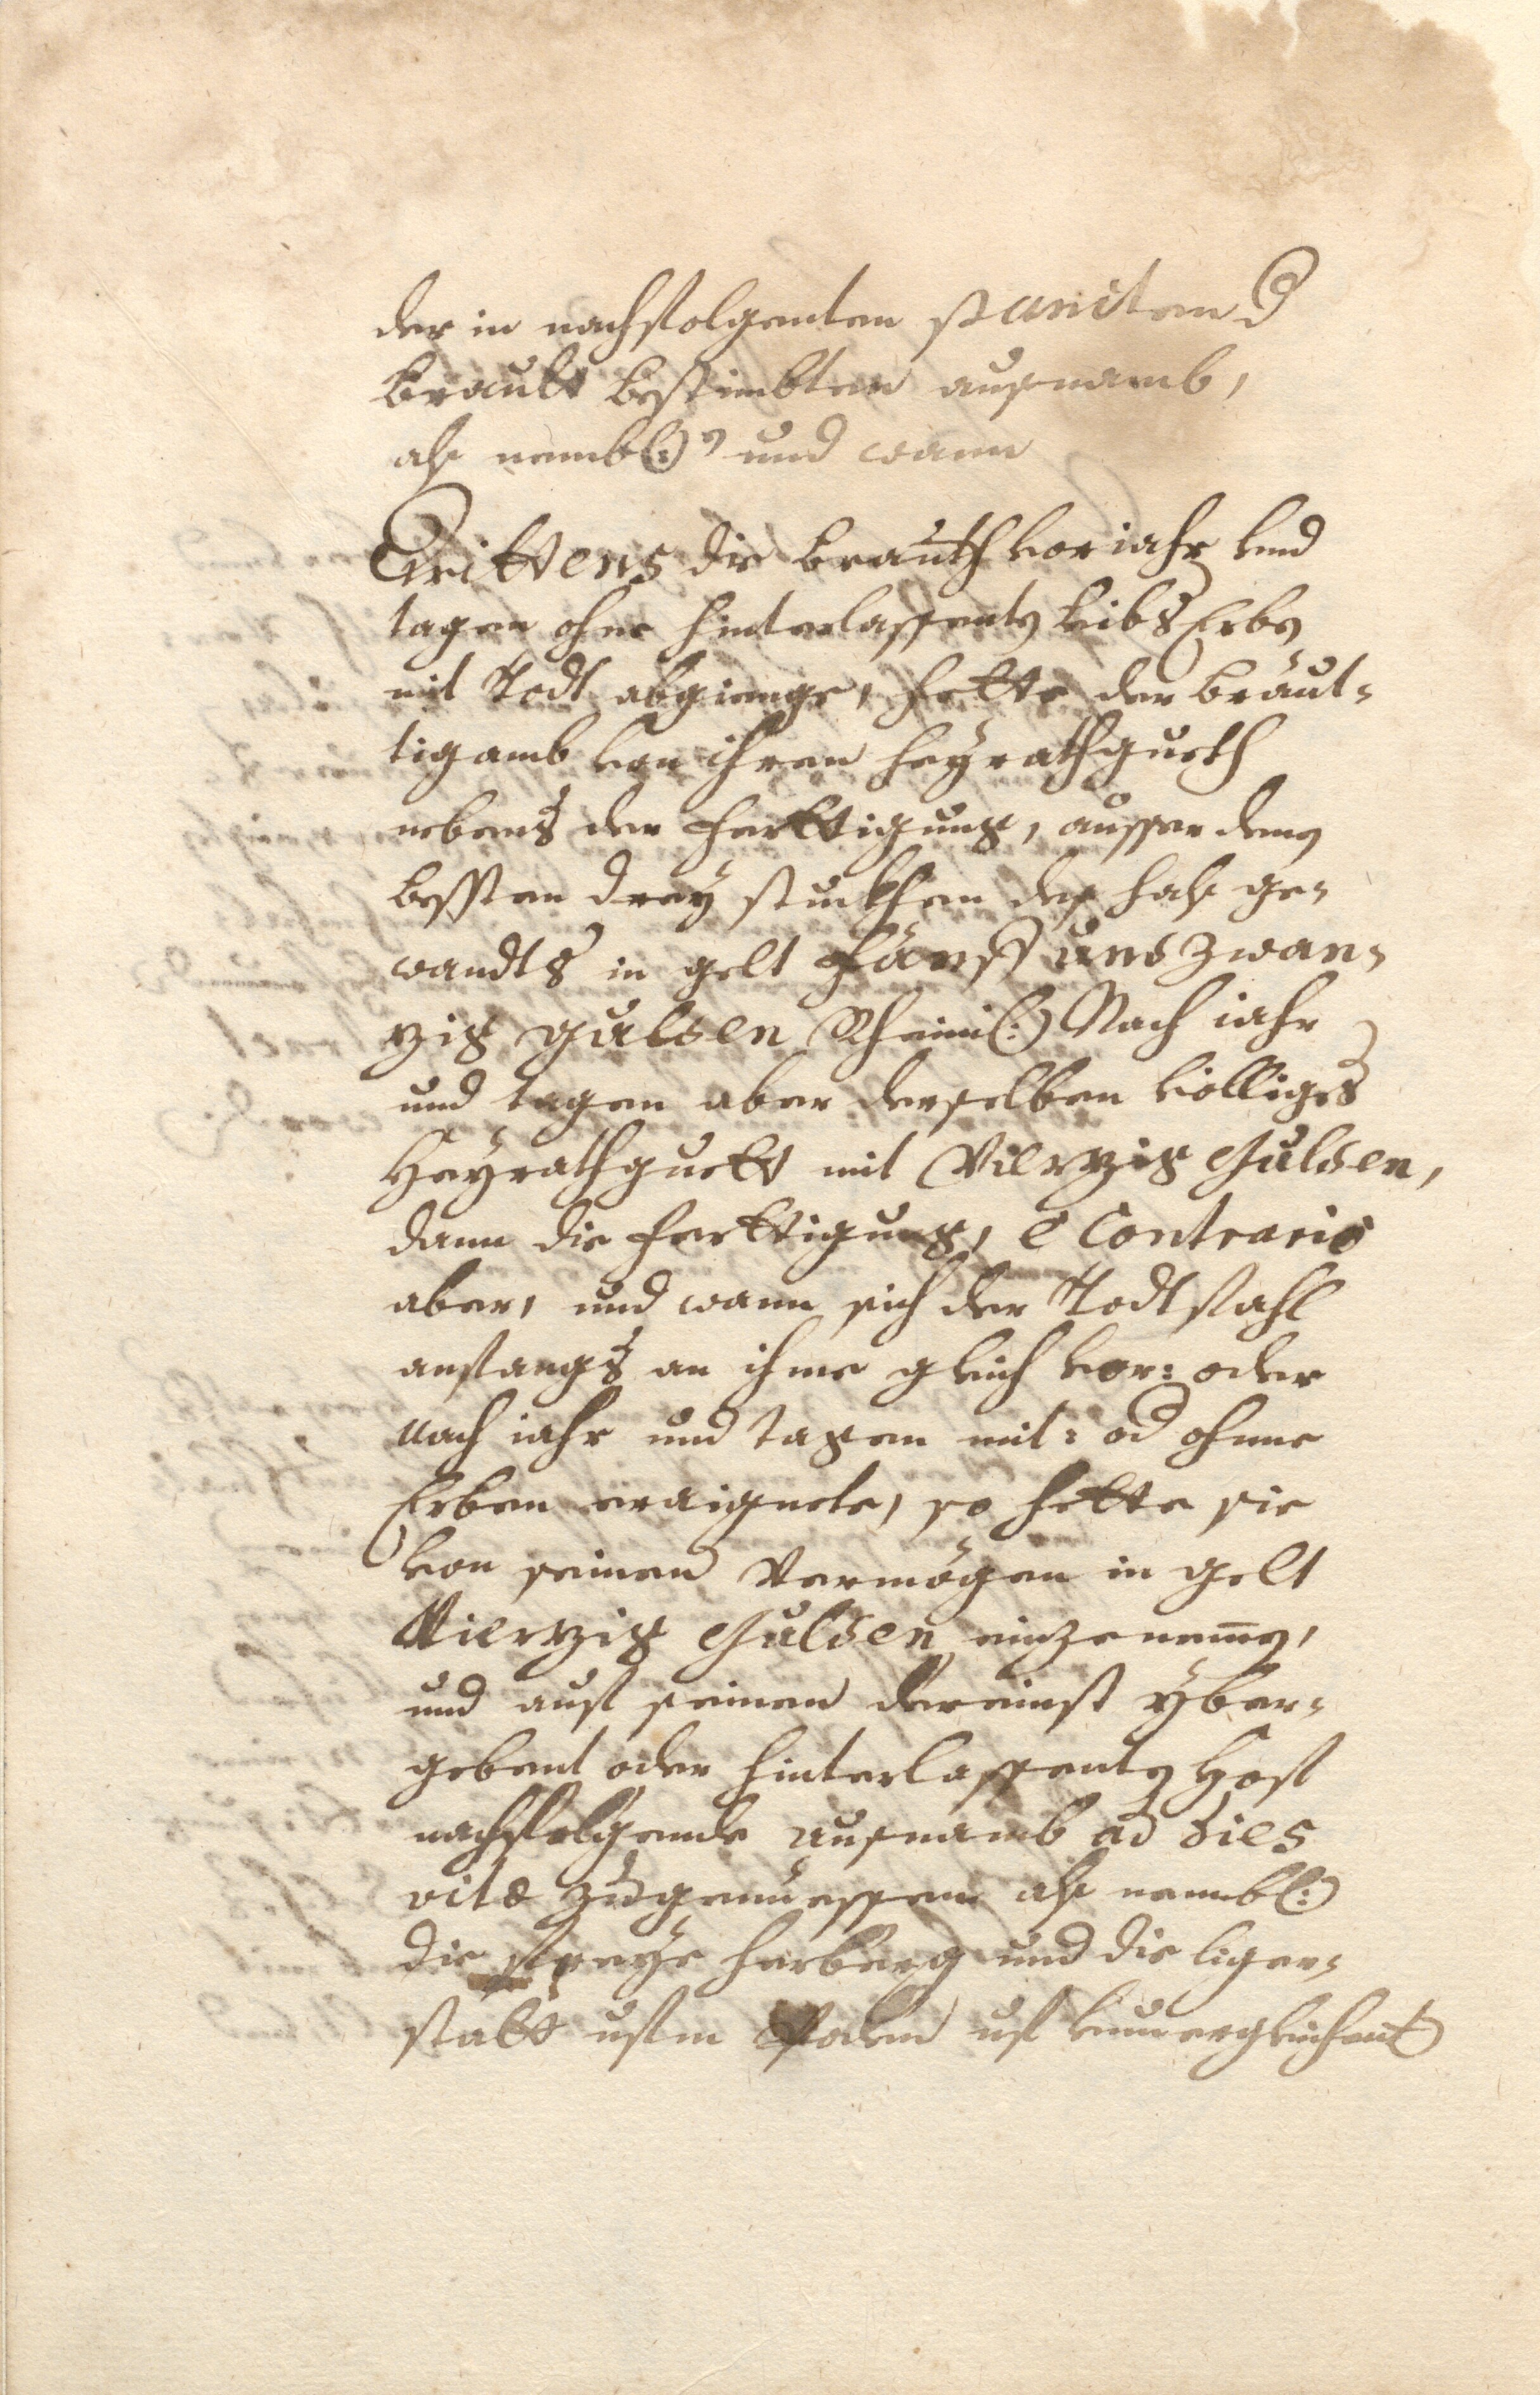 der in nachfolgenten st der
Brautt bestimbten ausnamb,
als nembl: und wann
Drittens die Brauth vor iahr vnd
tagen ohne hinterlassenty leibs Erby
mit Todt abgienge, hette der Breut-
tigamb von ihren heyrathgueth
nebens der ferttigung, ausser deny
bessten drey stuckhen des hals ge-
wandts in gelt Fünff und Zwan-
zig gulden Rheinl: Nach iahr
und tagen aber derselben völliges
Heyrathguett mit Vierzig Gulden,
dann die ferttigung, è Contrario
aber, und wann sich der Todtfahl
anfangs an ihme gleich vor: oder
nach iahr und tagen mit: od ohne
Erben eraignete, so hette sie
von seinen Vermögen in gelt
Vierzig Gulden einzenemy,
und auf seinen dereinst yber-
gebent oder hinterlassenty Hof
nachfolgende ausnamb ad dies
vitæ zugenuessen als nembl:
die freye herberg und die liger-
statt ufm Poden uf